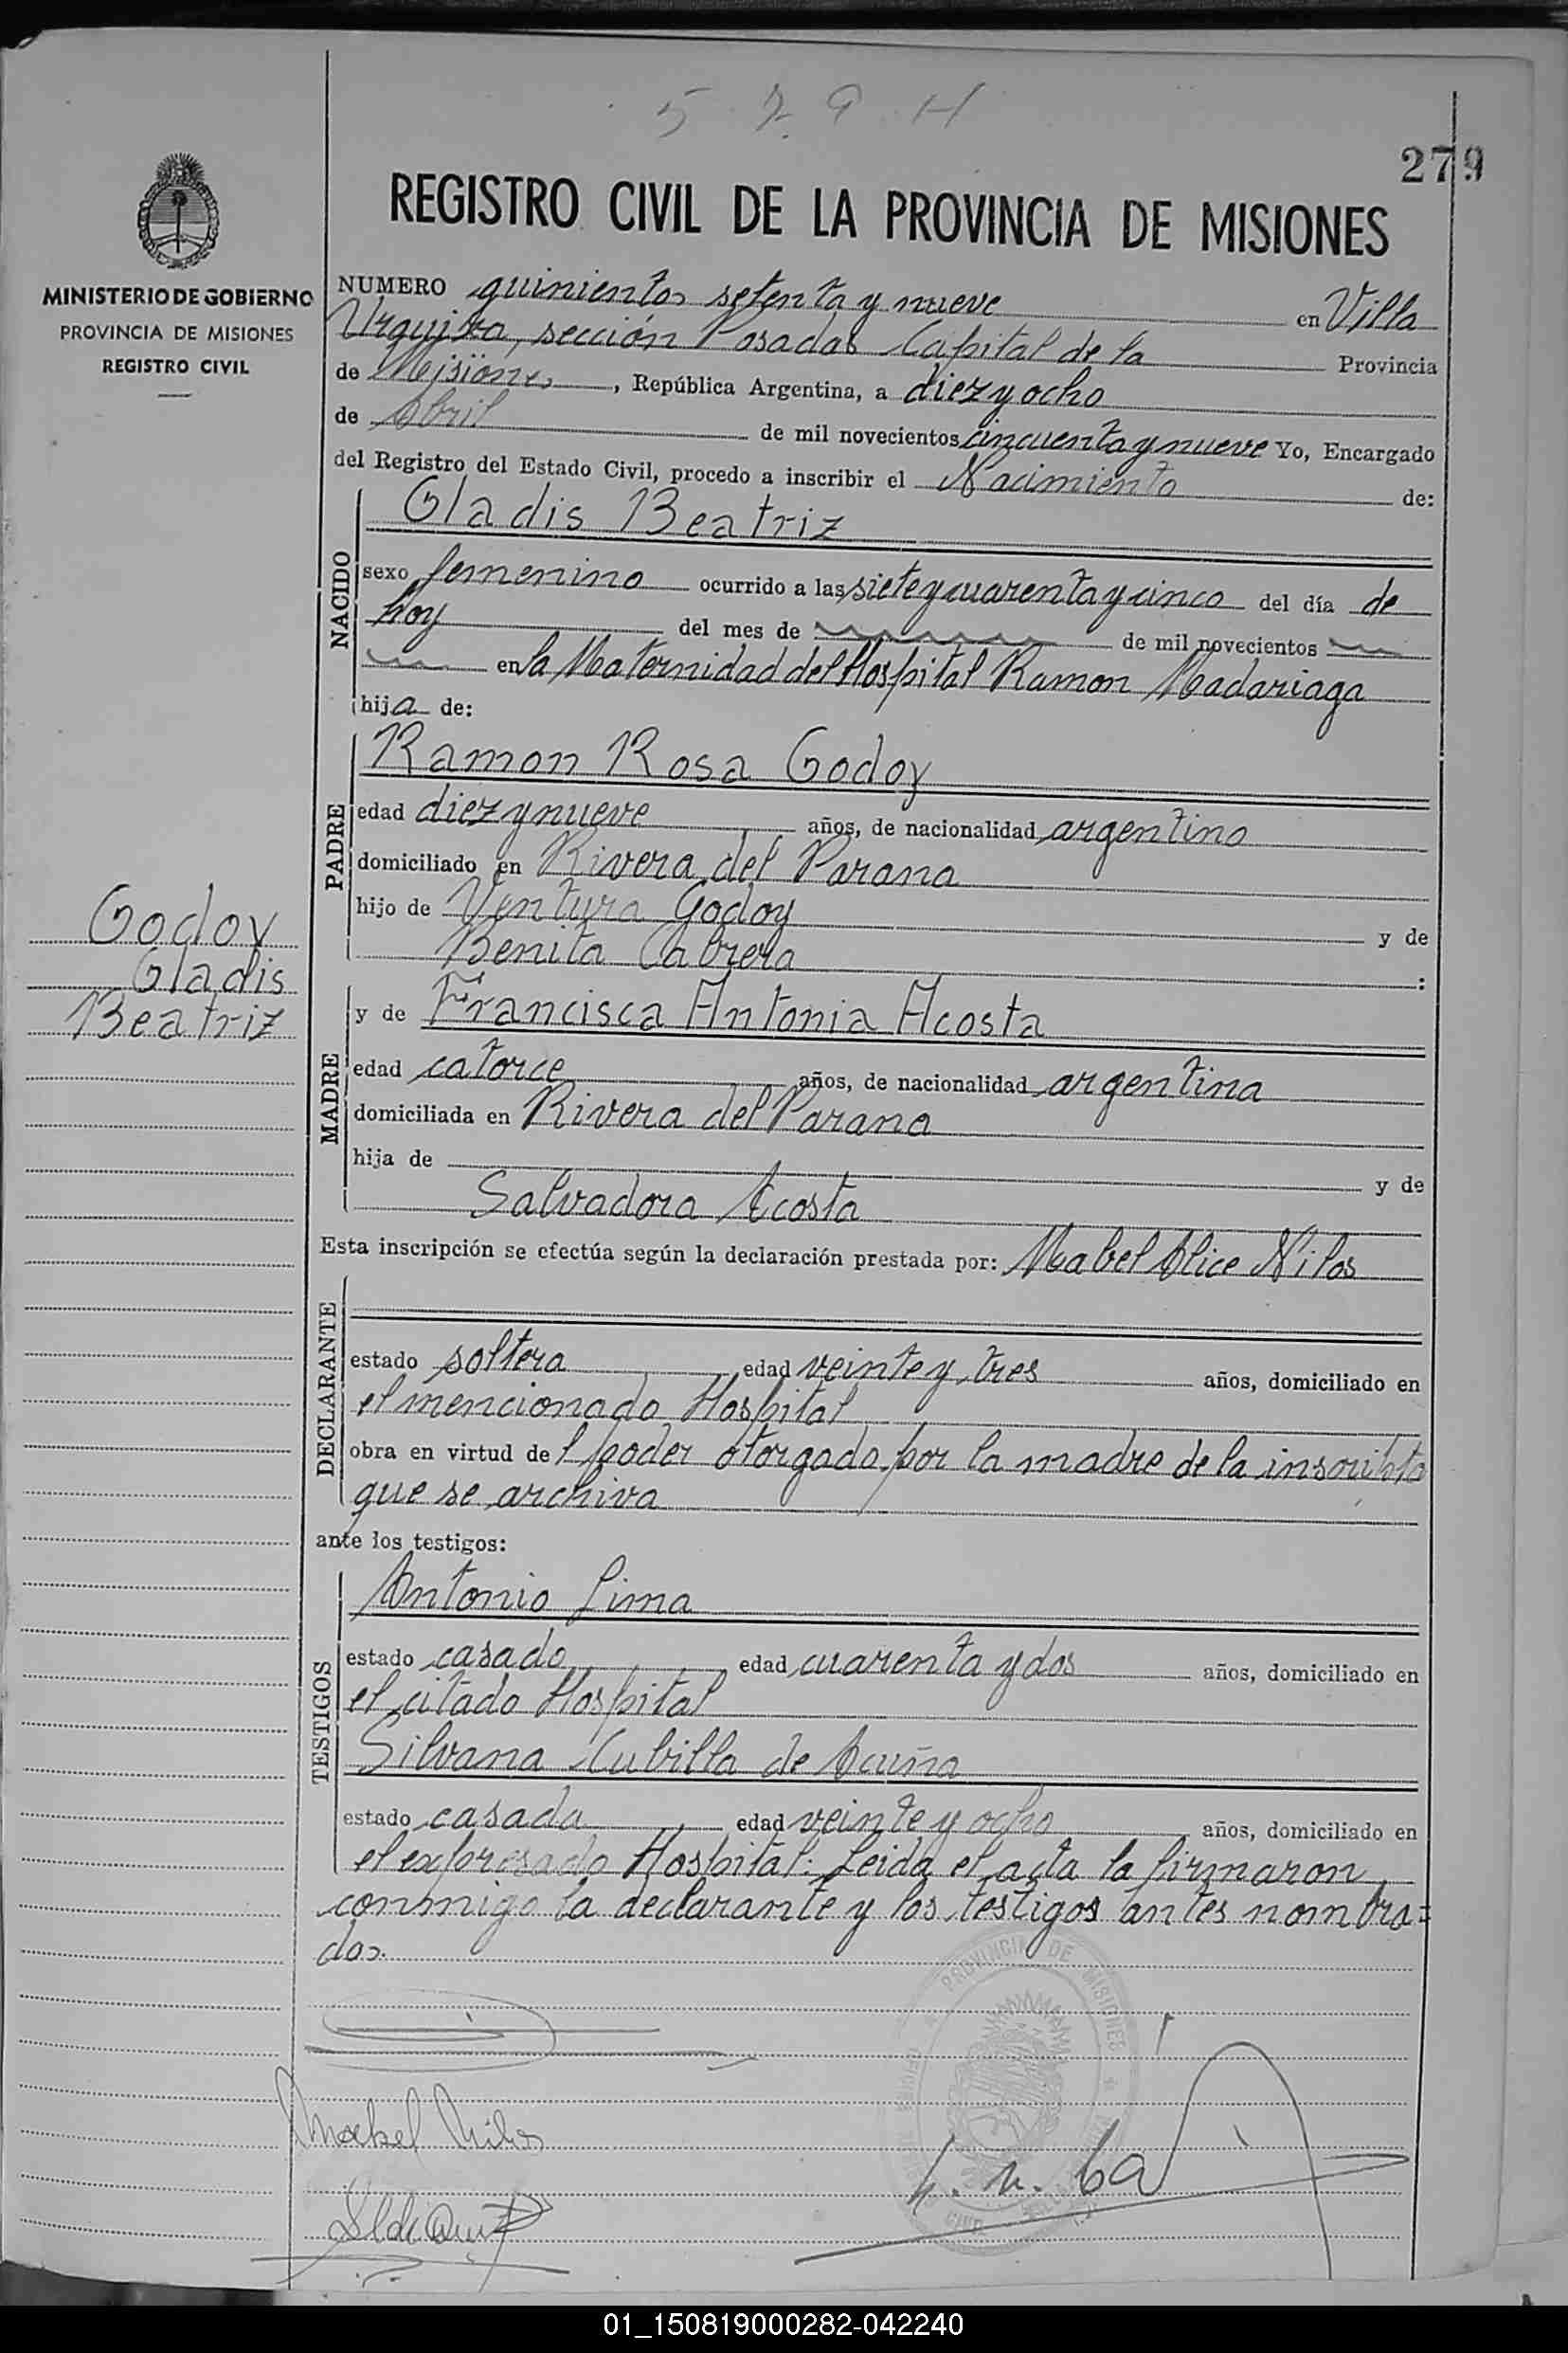 5 7 9 H
279
REGISTRO CIVIL DE LA PROVINCIA DE MISIONES
MINISTERIO DE GOBIERNO
PROVINCIA DE MISIONES
REGISTRO CIVIL
NUMERO quinientos setenta y nueve en Villa
Urquiza, sección Posadas Capital de la Provincia
de Misiones, República Argentina, a diez y ocho
de Abril de mil novecientos cincuenta y nueve Yo, Encargado
del Registro del Estado Civil, procedo a inscribir el Nacimiento de:
NACIDO
Gladis Beatriz
sexo femenino ocurrido a las siete y cuarenta y cinco del día de
hoy del mes de de mil novecientos
en la Maternidad del Hospital Ramon Madariaga
hija de:
PADRE
Ramon Rosa Godoy
edad diez y nueve años, de nacionalidad argentino
domiciliado en Rivera del Parana
hijo de Ventura Godoy y de
Benita Cabrera :
Godoy
Gladis
Beatriz
MADRE
y de Francisca Antonia Acosta
edad catorce años, de nacionalidad argentina
domiciliada en Rivera del Parana
hija de y de
Salvadora Acosta
Esta inscripción se efectúa según la declaración prestada por: Mabel Alice Nilos
DECLARANTE
estado soltera edad veinte y tres años, domiciliado en
el mencionado Hospital
obra en virtud del poder otorgado por la madre de la inscripta
que se archiva
ante los testigos:
TESTIGOS
Antonio Lima
estado casado edad cuarenta y dos años, domiciliado en
el citado Hospital
Silvana Cubilla de Acuña
estado casada edad veinte y ocho años, domiciliado en
el expresado Hospital: Leida el acta la firmaron
conmigo la declarante y los testigos antes nombra=
dos.
PROVINCIA DE MISIONES
Mabel Nilos
01_150819000282-042240